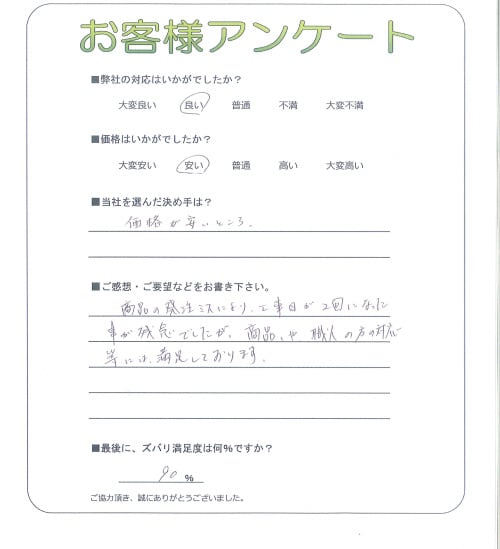 お客様アンケート
■弊社の対応はいかがでしたか？
大変良い 良い 普通 不満 大変不満
■価格はいかがでしたか？
大変安い 安い 普通 高い 大変高い
■当社を選んだ決め手は？
価格が安いところ。
■ご感想・ご要望などをお書き下さい。
商品の発注ミスにより、工事日が2回になった
事が残念でしたが、商品や、職人の方の対応
等には、満足しております。
■最後に、ズバリ満足度は何％ですか？
90 %
ご協力頂き、誠にありがとうございました。